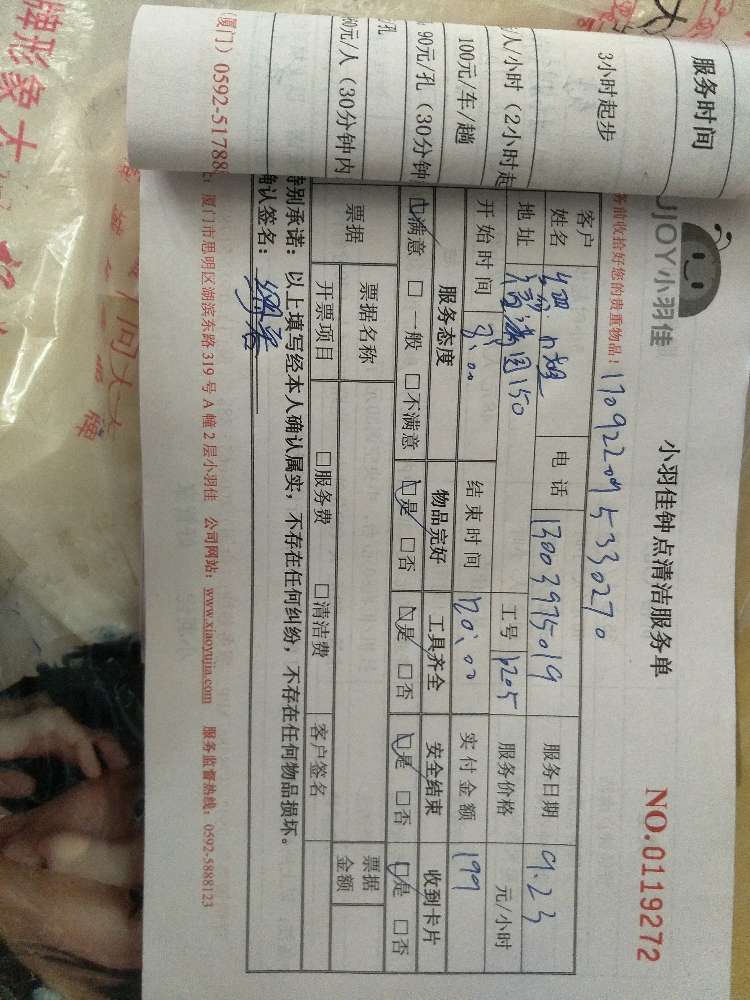 服务时间
3小时起步
人/小时（2小时起
100元/车/趟
90元/孔（30分钟
孔
元/人（30分钟内
（厦门）0592-51788
牌形象大
UJOY小羽佳
小羽佳钟点清洁服务单
NO.0119272
务前收拾好您的贵重物品！
1709220095330270
客户姓名 电话 13003975019 服务日期 9.23
地址 150 工号 服务价格 元/小时
开始时间 结束时间 实付金额 199
服务态度 物品完好 工具齐全 安全结束 收到卡片
☑满意 □一般 □不满意 ☑是 □否 ☑是 □否 ☑是 □否 ☑是 □否
票据 票据名称 票据金额
开票项目 □服务费 □清洁费 客户签名
特别承诺：以上填写经本人确认属实，不存在任何纠纷，不存在任何物品损坏。
确认签名：
厦门市思明区湖滨东路319号A幢2层小羽佳 公司网站：www.xiaoyujia.com 服务监督热线：0592-5888123